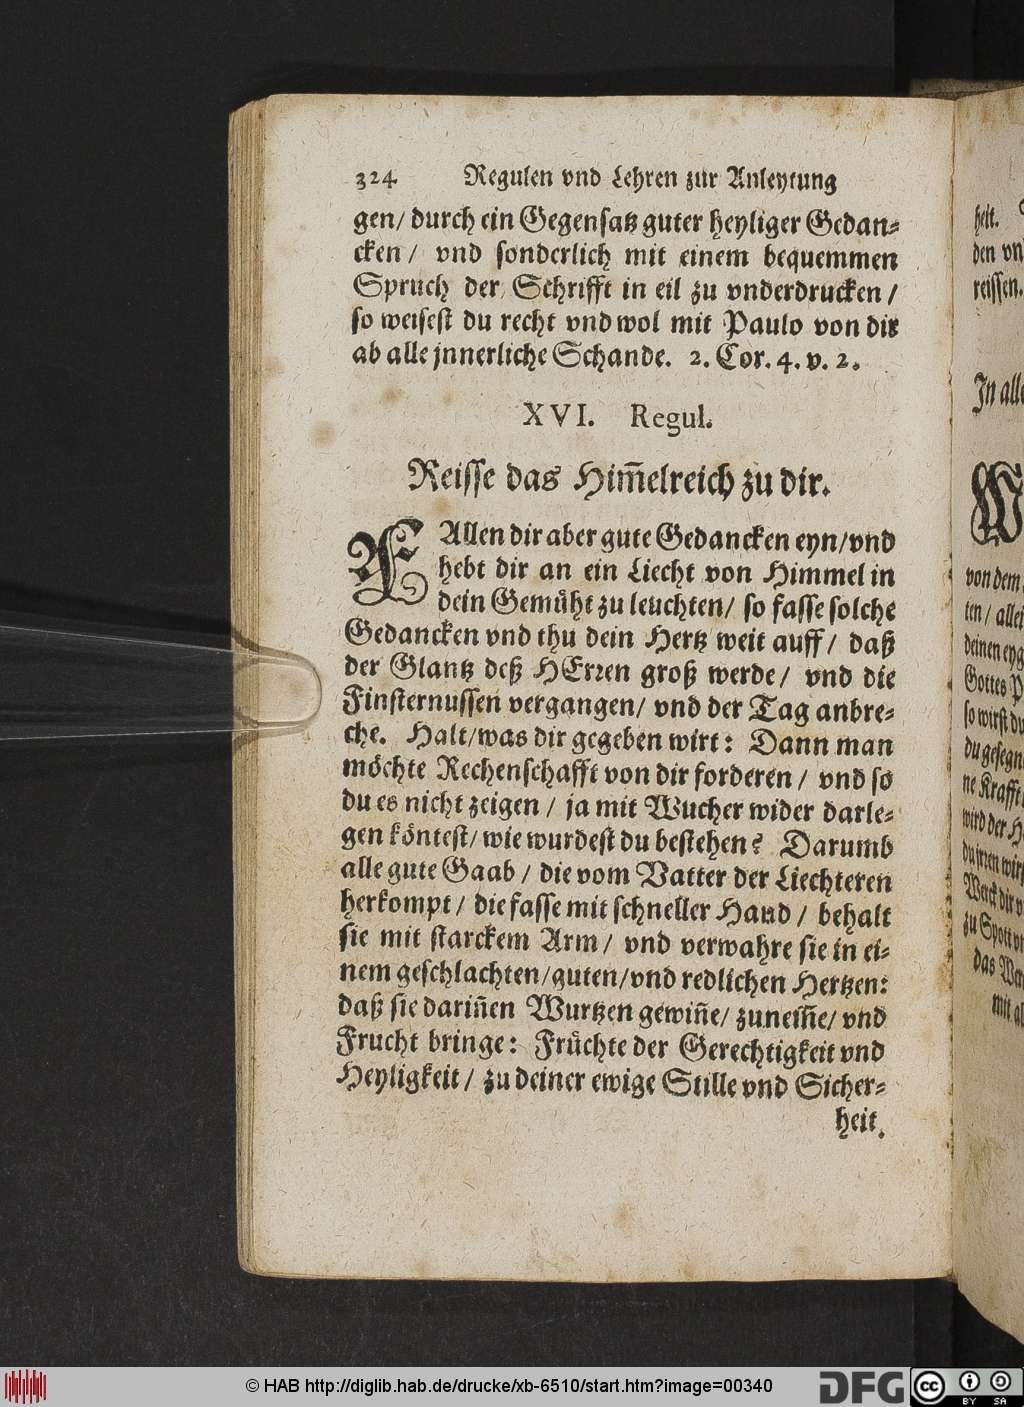 324 Regulen vnd Lehren zur Anleytung
gen/ durch ein Gegensatz guter heyliger Gedan-
cken/ vnd sonderlich mit einem bequemmen
Spruch der Schrifft in eil zu vnderdrucken/
so weisest du recht vnd wol mit Paulo von dir
ab alle jnnerliche Schande. 2. Cor. 4. v. 2.
XVI. Regul.
Reisse das Him̄elreich zu dir.
FAllen dir aber gute Gedancken eyn/vnd
hebt dir an ein Liecht von Himmel in
dein Gemüht zu leuchten/ so fasse solche
Gedancken vnd thu dein Hertz weit auff/ daß
der Glantz deß HErren groß werde/ vnd die
Finsternussen vergangen/ vnd der Tag anbre-
che. Halt/was dir gegeben wirt: Dann man
möchte Rechenschafft von dir forderen/ vnd so
du es nicht zeigen/ ja mit Wucher wider darle-
gen köntest/ wie wurdest du bestehen? Darumb
alle gute Gaab/ die vom Vatter der Liechteren
herkompt/ die fasse mit schneller Hand/ behalt
sie mit starckem Arm/ vnd verwahre sie in ei-
nem geschlachten/guten/vnd redlichen Hertzen:
daß sie dariñen Wurtzen gewiñe/ zunem̄e/ vnd
Frucht bringe: Früchte der Gerechtigkeit vnd
Heyligkeit/ zu deiner ewige Stille vnd Sicher-
heit.
heit.
den vn
reissen.
In alle
W
von dem
ten/ allei
deinen eyg
Gottes P
so wirst du
du gesegn
ne Krafft
wird der H
du jrren wirs
Werck dir v
zu Spott vn
das Wer
mit al
© HAB http://diglib.hab.de/drucke/xb-6510/start.htm?image=00340
DFG
cc BY SA